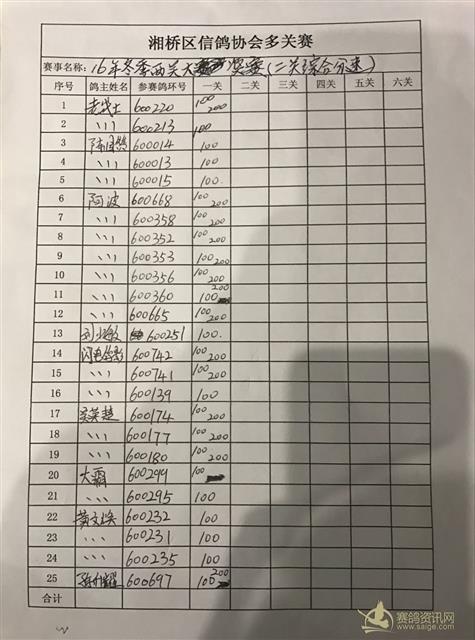 湘桥区信鸽协会多关赛
赛事名称: 16年冬季两关大奖赛(二关综合分速)
序号 鸽主姓名 参赛鸽环号 一关 二关 三关 四关 五关 六关
1 老战士 600220 100 200
2 〃 600213 100
3 600014 100
4 〃 600013 100
5 〃 600015 100.
6 阿波 600668 100 200
7 〃 600358 100 200
8 〃 600352 100 200
9 〃 600353 100 200
10 〃 600356 100 200
11 〃 600360 100 200
12 〃 600665 100 200
13 600251 100.
14 600742 100 200
15 〃 600741 100 200
16 〃 600139 100
17 600174 100 200
18 〃 600177 100 200
19 〃 600180 100 200
20 大霸 600299 100
21 〃 600295 100
22 600232 100
23 〃 600231 100
24 〃 600235 100
25 600697 100 200
合计
赛鸽资讯网
www.saige.com